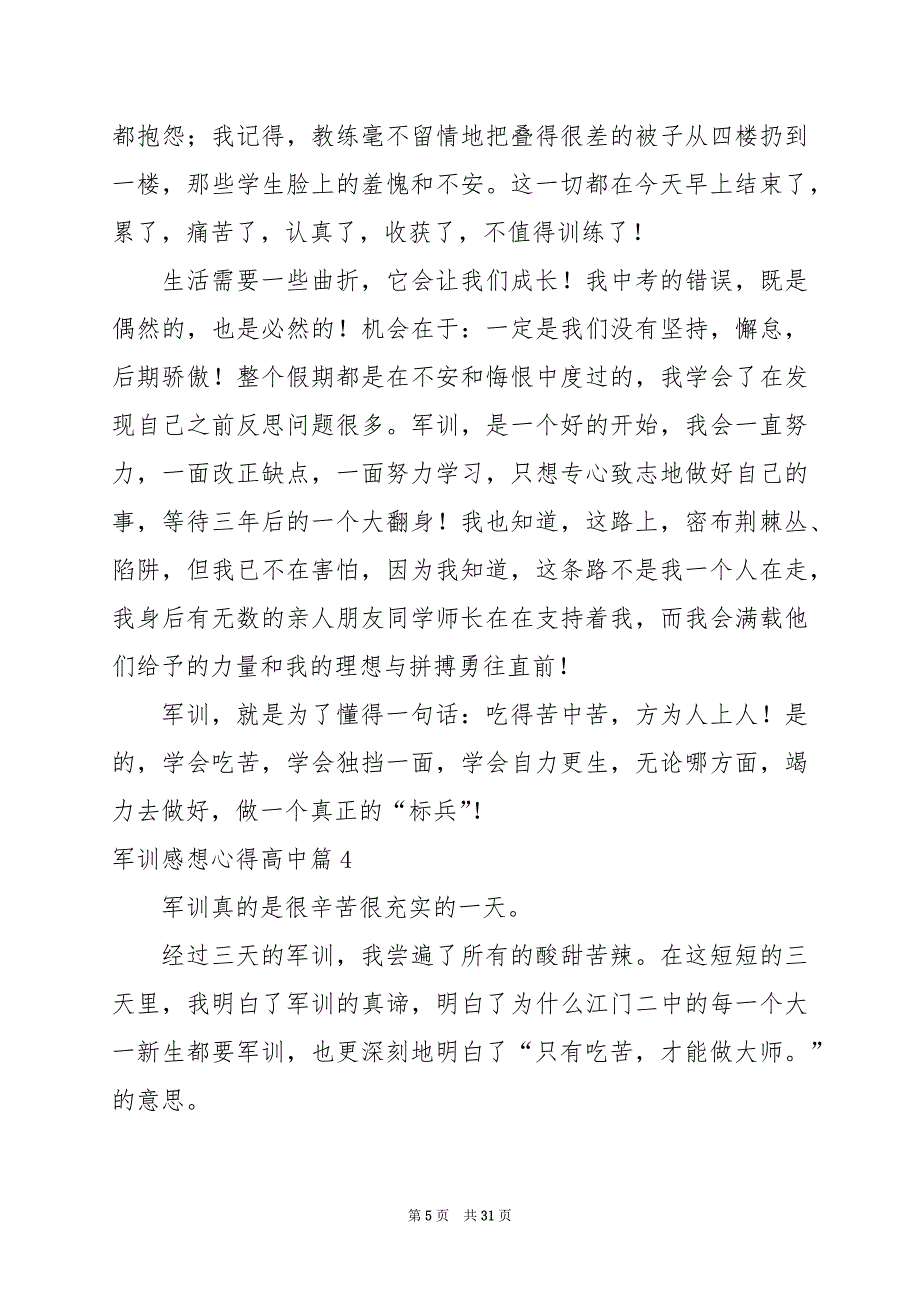 都抱怨；我记得，教练毫不留情地把叠得很差的被子从四楼扔到
一楼，那些学生脸上的羞愧和不安。这一切都在今天早上结束了，
累了，痛苦了，认真了，收获了，不值得训练了！
生活需要一些曲折，它会让我们成长！我中考的错误，既是
偶然的，也是必然的！机会在于：一定是我们没有坚持，懈怠，
后期骄傲！整个假期都是在不安和悔恨中度过的，我学会了在发
现自己之前反思问题很多。军训，是一个好的开始，我会一直努
力，一面改正缺点，一面努力学习，只想专心致志地做好自己的
事，等待三年后的一个大翻身！我也知道，这路上，密布荆棘丛、
陷阱，但我已不在害怕，因为我知道，这条路不是我一个人在走，
我身后有无数的亲人朋友同学师长在在支持着我，而我会满载他
们给予的力量和我的理想与拼搏勇往直前！
军训，就是为了懂得一句话：吃得苦中苦，方为人上人！是
的，学会吃苦，学会独挡一面，学会自力更生，无论哪方面，竭
力去做好，做一个真正的“标兵”！
军训感想心得高中篇 4
军训真的是很辛苦很充实的一天。
经过三天的军训，我尝遍了所有的酸甜苦辣。在这短短的三
天里，我明白了军训的真谛，明白了为什么江门二中的每一个大
一新生都要军训，也更深刻地明白了“只有吃苦，才能做大师。”
的意思。
第 5 页 共 31 页